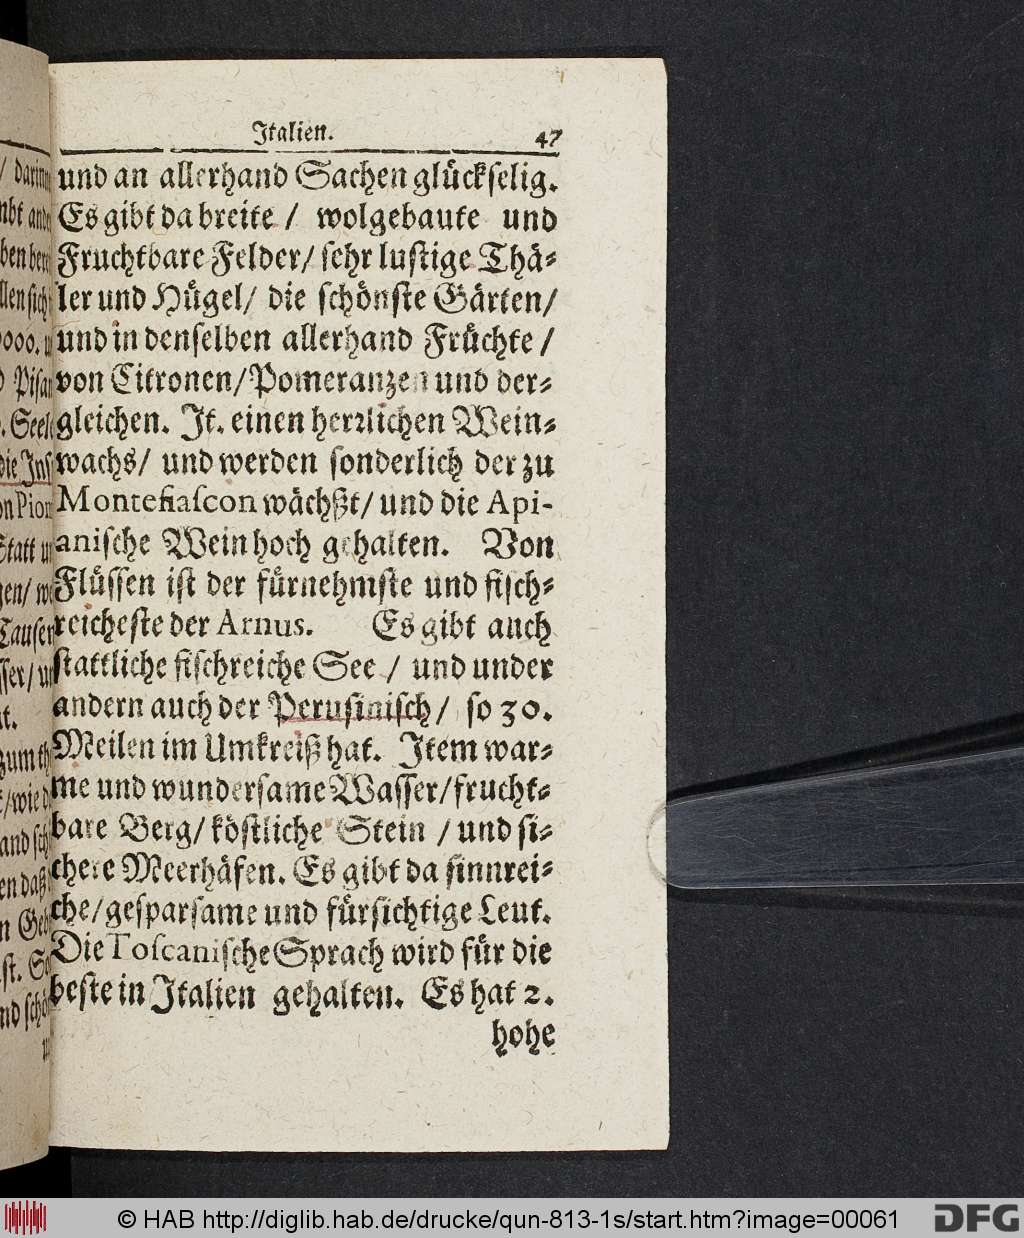 Italien. 47
und an allerhand Sachen glückselig.
Es gibt da breite / wolgebaute und
Fruchtbare Felder/ sehr lustige Thä-
ler und Hügel/ die schönste Gärten/
und in denselben allerhand Früchte /
von Citronen/ Pomeranzen und der-
gleichen. It. einen herrlichen Wein-
wachs/ und werden sonderlich der zu
Montefiascon wächßt/ und die Api-
anische Wein hoch gehalten. Von
Flüssen ist der fürnehmste und fisch-
reicheste der Arnus. Es gibt auch
stattliche fischreiche See / und under
andern auch der Perusinisch/ so 30.
Meilen im Umkreiß hat. Item war-
me und wundersame Wasser/ frucht-
bare Berg/ köstliche Stein / und si-
chere Meerhäfen. Es gibt da sinnrei-
che/ gesparsame und fürsichtige Leut.
Die Toscanische Sprach wird für die
beste in Italien gehalten. Es hat 2.
hohe
© HAB http://diglib.hab.de/drucke/qun-813-1s/start.htm?image=00061
DFG